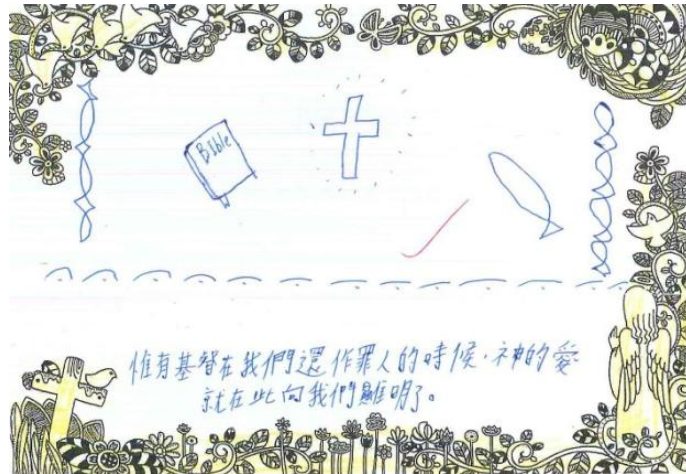 Bible
惟有基督在我們還作罪人的時候，神的愛
就在此向我們顯明了。